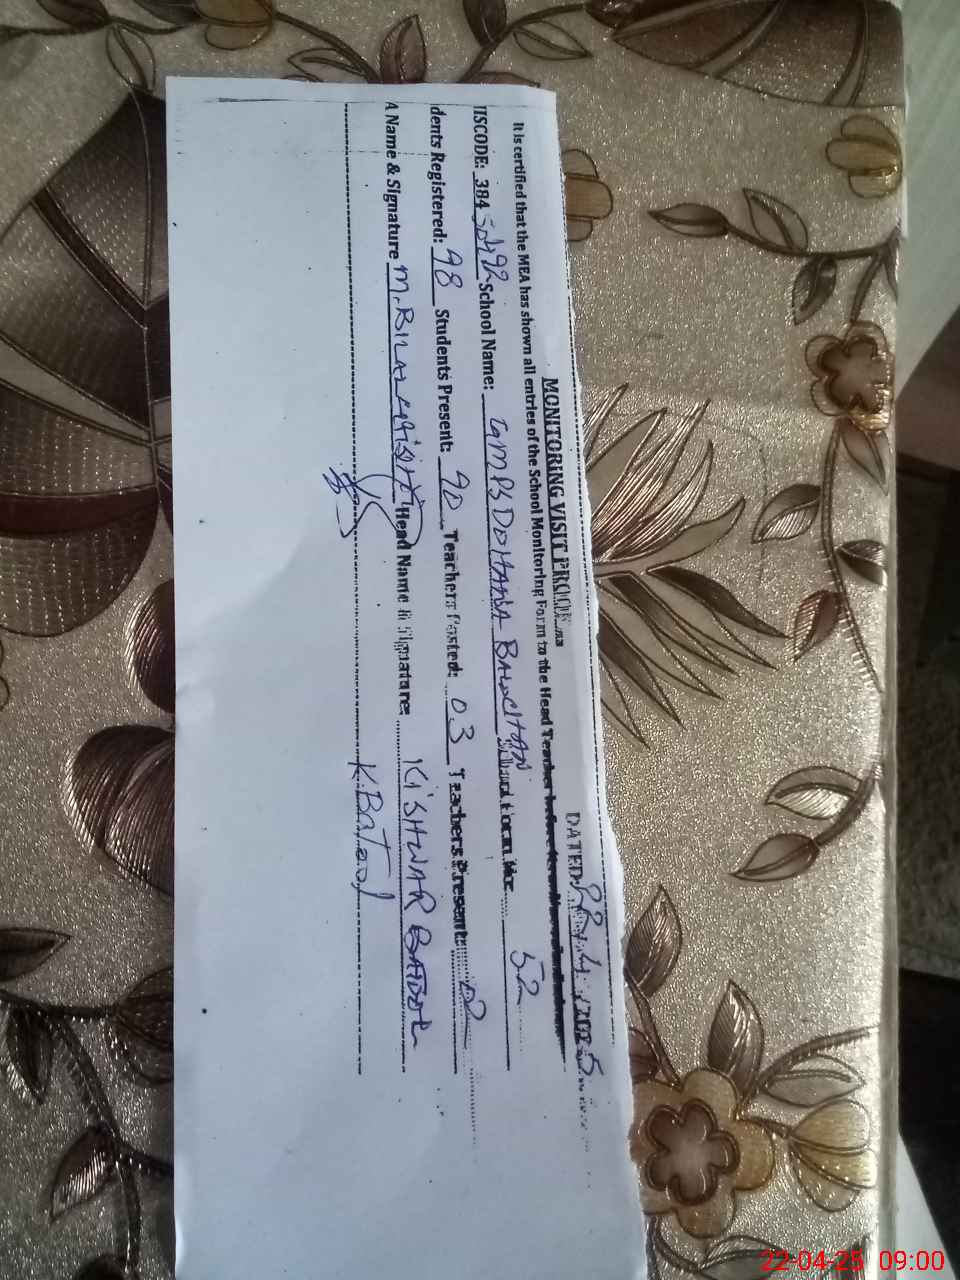 MONITORING VISIT PROOF
DATED: 22-4-2025
It is certified that the MEA has shown all entries of the School Monitoring Form to the Head Teacher before
IISCODE: 384 School Name: GMPS DOHANA BALOCHAN 52
dents Registered: 98 Students Present: 90 Teachers Posted: 03 Teachers Present: 02
A Name & Signature M. BILAL Head Name & Signature: KISHWAR BATOOL
K. Batool
22-04-25 09:00